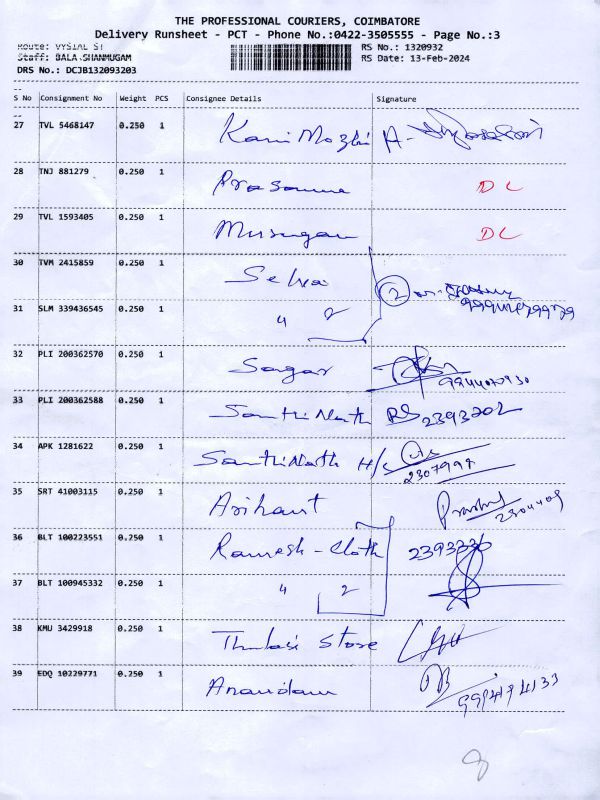 THE PROFESSIONAL COURIERS, COIMBATORE
Delivery Runsheet - PCT - Phone No.:0422-3505555 - Page No.:3
Route: VYSIAL ST RS No.: 1320932
Staff: BALA SHANMUGAM RS Date: 13-Feb-2024
DRS No.: DCJB132093203
S No Consignment No Weight PCS Consignee Details Signature
27 TVL 5468147 0.250 1 Kani Mozhi A.
28 TNJ 881279 0.250 1 Prasanna DL
29 TVL 1593405 0.250 1 Murugan DL
30 TVM 2415859 0.250 1 Selva 2
31 SLM 339436545 0.250 1 " 2
32 PLI 200362570 0.250 1 Sagar
33 PLI 200362588 0.250 1 Santhi Nath RS 2393202
34 APK 1281622 0.250 1 Santhi Nath H/s 2307999
35 SRT 41003115 0.250 1 Arihant 2304409
36 BLT 100223551 0.250 1 Ramesh - Cloth 2393336
37 BLT 100945332 0.250 1 " 2
38 KMU 3429918 0.250 1 Thulasi Store
39 EDQ 10229771 0.250 1 Anandam 9994194133
8